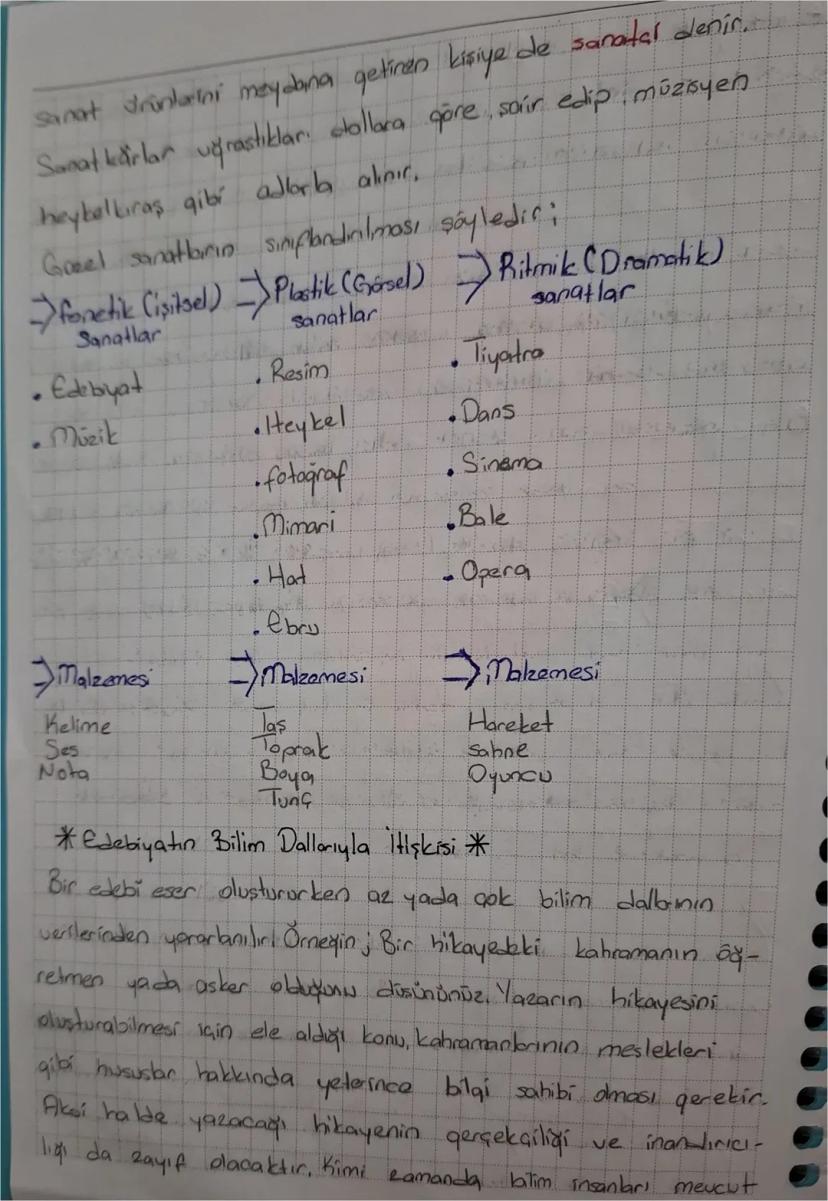 sanat ürünlerini meydana getiren kişiye de sanatçı denir.
Sanatkârlar uğraştıkları dallara göre, şair edip, müzisyen
heykeltıraş gibi adlarla alınır.
Güzel sanatların sınıflandırılması şöyledir;
⇒ fonetik (işitsel) ⇒ Plastik (Görsel) ⇒ Ritmik (Dramatik)
Sanatlar sanatlar sanatlar
• Edebiyat • Resim • Tiyatro
• Müzik • Heykel • Dans
• fotoğraf • Sinema
• Mimari • Bale
• Hat • Opera
• Ebru
⇒ Malzemesi ⇒ Malzemesi ⇒ Malzemesi
Kelime Taş Hareket
Ses Toprak sahne
Nota Boya Oyuncu
Tunç
* Edebiyatın Bilim Dallarıyla İlişkisi *
Bir edebi eser oluştururken az yada çok bilim dallarının
verilerinden yararlanılır. Örneğin; Bir hikayedeki kahramanın öğ-
retmen yada asker olduğunu düşününüz. Yazarın hikayesini
oluşturabilmesi için ele aldığı konu, kahramanlarının meslekleri
gibi hususlar hakkında yeterince bilgi sahibi olması gerekir.
Aksi halde yazacağı hikayenin gerçekçiliği ve inandırıcı-
lığı da zayıf olacaktır. Kimi zamanda bilim insanları mevcut